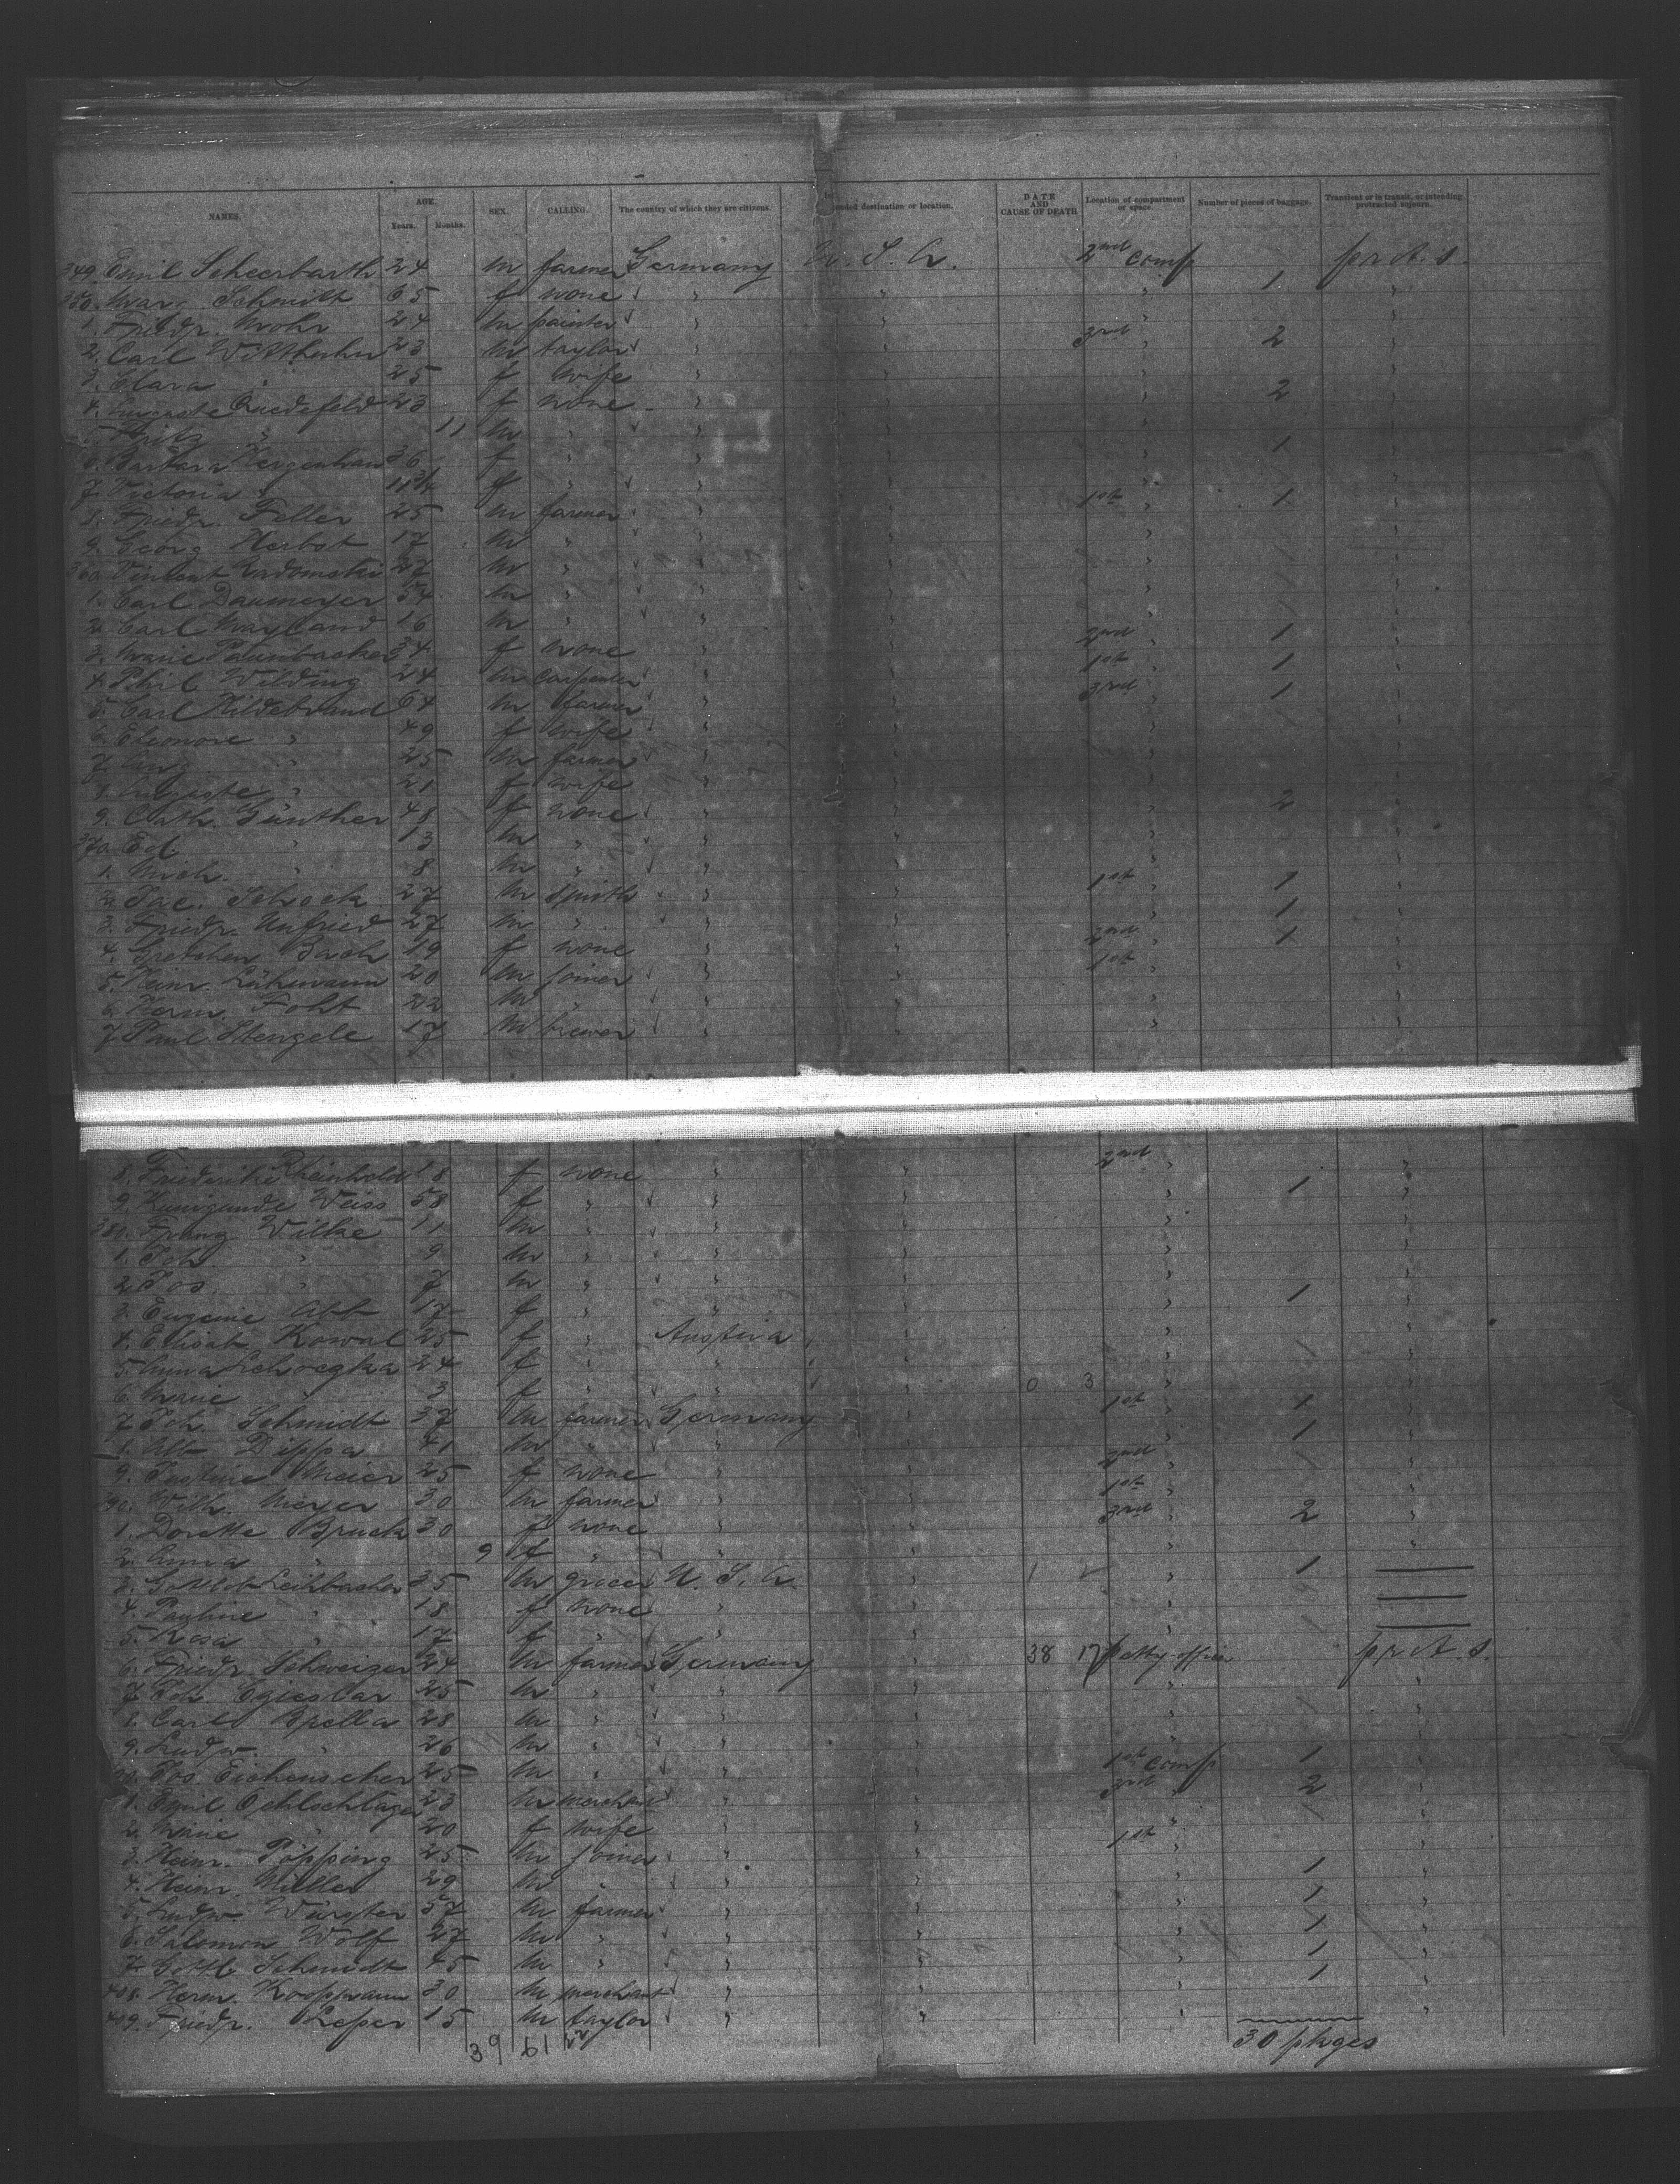 NAMES. AGE. Years. Months. SEX. CALLING. The country of which they are citizens. Intended destination or location. DATE AND CAUSE OF DEATH Location of compartment or space. Number of pieces of baggage. Transient or in transit, or intending protracted sojourn.
349. Emil Scheerbarth 24 m farmer Germany U. S. A. 2nd comp prot. s.
350. Marg. Schmidt 65 f none " " " 1 "
1. Friedr. Mohr 24 m painter " " " "
2. Carl 23 m taylor " " 3rd " 2 "
3. Clara " 25 f wife " " " "
4. Auguste Quedefeld 23 f none " " " 2 "
5. Fritz " 11 m " " " "
6. Barbara 36 f " " " 1 "
7. Victoria " 11 3/4 f " " " "
8. Friedr. Feller 25 m farmer " " 1st " 1 "
9. Georg Herbst 17 m " " " "
360. Vincent Radomski 27 m " " " "
1. Carl Daumeyer 54 m " " " "
2. Carl Mayland 16 m " " " "
3. Marie 34 f none " " 2nd " 1 "
4. Phil Wilding 24 m carpenter " " 1st " 1 "
5. Carl Hildebrand 64 m farmer " " 3rd " 1 "
6. Eleonore " 49 f wife " " " "
7. Aug. " 25 m farmer " " " "
8. Auguste " 21 f wife " " " "
9. Cath. Günther 48 f none " " " 2 "
370. Ed. " 13 m " " " "
1. Mich. " 8 m " " " "
2. Jac. Schock 27 m smith " " 1st " 1 "
3. Friedr. Unfried 27 m " " " 1 "
4. Gretchen Bach 19 f none " " 2nd " 1 "
5. Heinr. Lühmann 20 m joiner " " 1st " "
6. Herm. Foht 22 m " " " "
7. Paul Stengele 17 m brewer " " " "
8. Friederike Reinhold 18 f none " " 2nd " "
9. Kunigunde Weiss 58 f " " " 1 "
380. Franz Wilke 11 m " " " "
1. Joh. " 9 m " " " "
2. Jos. " 7 m " " " "
3. Eugenie Abt 17 f " " " 1 "
4. Elisab. Kowal 25 f " Austria " "
5. Anna 24 f " " " "
6. Marie " 3 f " " " 0 3 "
7. Joh. Schmidt 37 m farmer Germany " 1st " 1 "
8. Alb. Dippa 41 m " " " 1 "
9. Justine Meier 25 f none " " 2nd " "
390. Wilh. Meyer 30 m farmer " " 1st " "
1. Dorette Bruck 30 f none " " 3rd " 2 "
2. Anna " 9 f " " " "
3. Gottlob 35 m grocer U. S. A. " 1 " 1
4. Pauline " 18 f none " " "
5. Rosa " 17 f " " " "
6. Friedr. Schweizer 24 m farmer Germany " 38 17 petty officer prot. s.
7. Joh. 25 m " " " "
8. Carl Spella 28 m " " " "
9. Ludw. " 26 m " " " "
400. Jos. Eichenseher 25 m " " " 1st comp 1 "
1. Emil Oehlschlager 23 m merchant " " 3rd " 2 "
2. Marie " 20 f wife " " " "
3. Heinr. Pöpping 25 m joiner " " 1st " "
4. Heinr. Müller 29 m " " " 1 "
5. Ludw. Würster 57 m farmer " " " 1 "
6. Salomon Wolf 27 m " " " 1 "
7. Gottl. Schmidt 45 m " " " 1 "
408. Herm. Koopmann 30 m merchant " " " 1 "
409. Friedr. Leper 15 m taylor " " " "
39 61 30 pkges